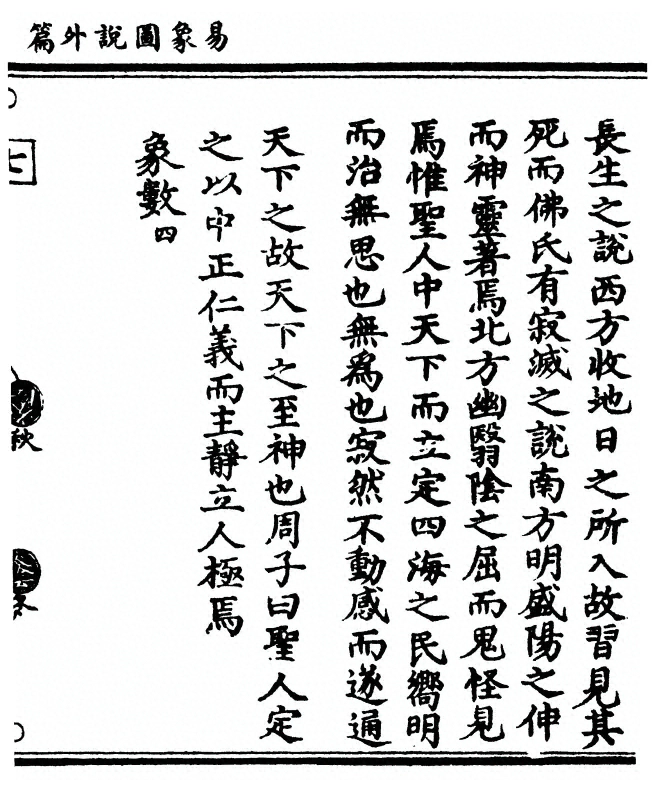 易象圖說外篇
長生之說西方收地日之所入故習見其
死而佛氏有寂滅之說南方明盛陽之伸
而神靈著焉北方幽翳陰之屈而鬼怪見
焉惟聖人中天下而立定四海之民嚮明
而治無思也無為也寂然不動感而遂通
天下之故天下之至神也周子曰聖人定
之以中正仁義而主靜立人極焉
象數四
七
秋
冬